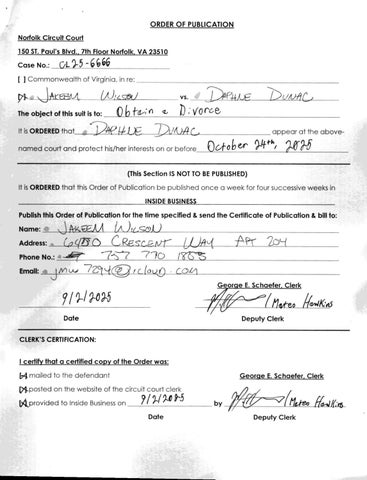 ORDER OF PUBLICATION
Norfolk Circuit Court
150 ST. Paul's Blvd., 7th Floor Norfolk, VA 23510
Case No.: CL25-6666
[ ] Commonwealth of Virginia, in re:
[X] JAKEEM WILSON vs. DAPHNE DUNAC
The object of this suit is to: Obtain a Divorce
It is ORDERED that DAPHNE DUNAC appear at the above-
named court and protect his/her interests on or before October 24th, 2025
(This Section IS NOT TO BE PUBLISHED)
It is ORDERED that this Order of Publication be published once a week for four successive weeks in
INSIDE BUSINESS
Publish this Order of Publication for the time specified & send the Certificate of Publication & bill to:
Name: JAKEEM WILSON
Address: CRESCENT WAY APT 204
Phone No.: 757 770 1855
Email: jmw7294@icloud.com
George E. Schaefer, Clerk
9/2/2025 / Mateo Hawkins
Date Deputy Clerk
CLERK'S CERTIFICATION:
I certify that a certified copy of the Order was:
[X] mailed to the defendant George E. Schaefer, Clerk
[X] posted on the website of the circuit court clerk
[X] provided to Inside Business on 9/2/2025 by / Mateo Hawkins
Date Deputy Clerk